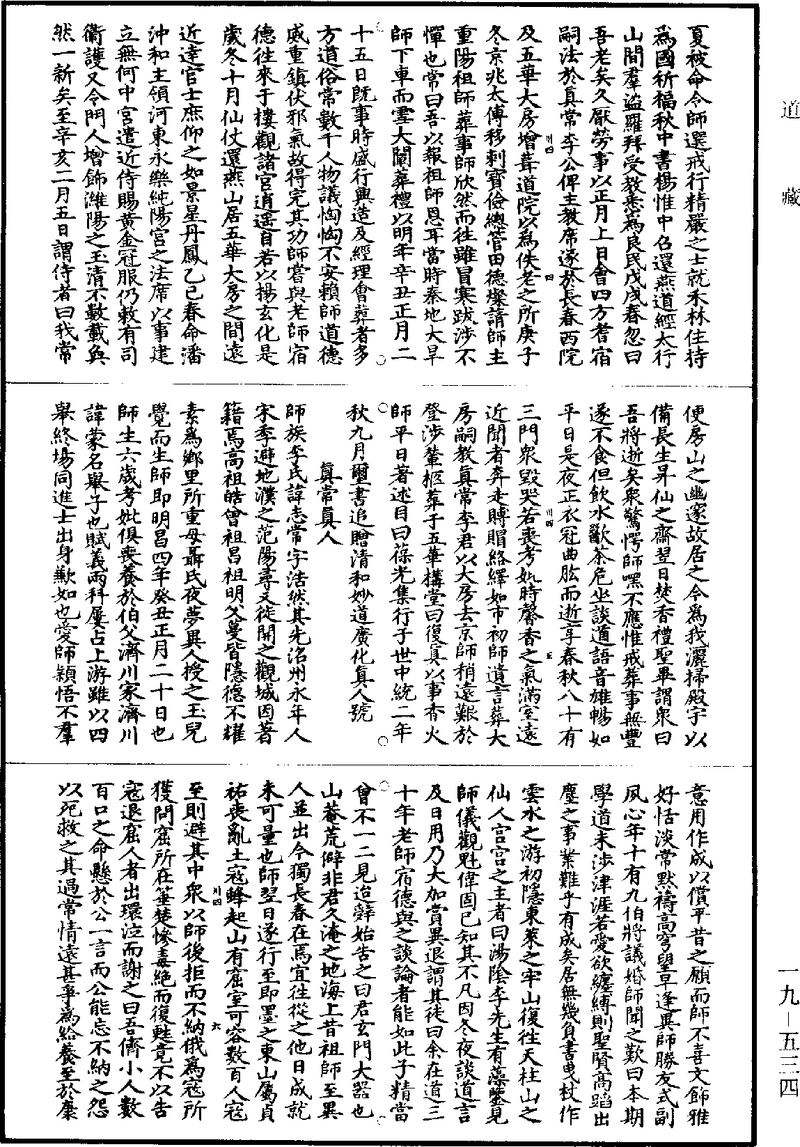 道藏
夏被命令師選戒行精嚴之士就禾林住持
爲國祈福秋中書楊惟中召還燕道經太行
山間羣盜羅拜受教悉爲良民戊戌春忽曰
吾老矣久厭勞事以正月上日會四方耆宿
嗣法於真常李公俾主教席遂於長春西院
及五華大房增葺道院以爲佚老之所庚子
冬京兆太傅移剌寶儉總管田德燦請師主
重陽祖師葬事師欣然而往雖冒寒跋涉不
憚也常曰吾以報祖師恩耳當時秦地大旱
師下車而雪大闡葬禮以明年辛丑正月二
十五日既事時盛行興造及經理會葬者多
方道俗常數千人物議恟恟不安賴師道德
威重鎮伏邪氣故得完其功師嘗與老師宿
德往來于樓觀諸宮逍遥自若以揚玄化是
歲冬十月仙仗還燕山居五華大房之間遠
近達官士庶仰之如景星丹鳳乙巳春命潘
沖和主領河東永樂純陽宮之法席以事建
立無何中宮遣近侍賜黃金冠服仍敕有司
衛護又令門人增飾濰陽之玉清不數載奐
然一新矣至辛亥二月五日謂侍者曰我常
便房山之幽邃故居之今爲我灑掃殿宇以
備長生昇仙之齋翌日焚香禮聖畢謂衆曰
吾將逝矣衆驚愕師嘿不應惟戒葬事無豐
遂不食但飲水歠茶危坐談道語音雄暢如
平日是夜正衣冠曲肱而逝享春秋八十有
三門衆毀哭若喪考妣時馨香之氣滿室遠
近聞者奔走賻賵絡繹如市初師遺言葬大
房嗣教真常李君以大房去京師稍遠艱於
登涉輦柩葬于五華搆堂曰復真以事香火
師平日著述目曰葆光集行于世中統二年
秋九月璽書追贈清和妙道廣化真人號
真常真人
師族李氏諱志常字浩然其先洺州永年人
宋季避地濮之范陽尋又徙開之觀城因著
籍焉高祖皓曾祖昌祖明父蔓皆隱德不耀
素爲鄉里所重母聶氏夜夢異人授之玉兒
覺而生師即明昌四年癸丑正月二十日也
師生六歲考妣俱喪養於伯父濟川家濟川
諱蒙名舉子也賦義兩科屢占上游雖以四
舉終場同進士出身歉如也愛師穎悟不羣
意用作成以償平昔之願而師不喜文飾雅
好恬淡常默禱高穹望早逢異師勝友式副
夙心年十有九伯將議婚師聞之歎曰本期
學道未涉津涯若愛欲纏縛則聖賢高蹈出
塵之事業難乎有成矣居無幾負書曳杖作
雲水之游初隱東萊之牢山復徃天柱山之
仙人宮宮之主者曰湯陰李先生有藻鑒見
師儀觀魁偉固已知其不凡因冬夜談道言
及日用乃大加賞異退謂其徒曰余在道三
十年老師宿德與之談論者能如此子精當
曾不一二見迨辭始告之曰君玄門大器也
山菴荒僻非君久淹之地海上昔祖師至異
人並出今獨長春在焉宜往從之他日成就
未可量也師翌日遂行至即墨之東山屬貞
祐喪亂土寇蜂起山有窟室可容數百人寇
至則避其中衆以師後拒而不納俄爲寇所
獲問窟所在箠楚慘毒絕而復甦竟不以告
寇退窟人者出環泣而謝之曰吾儕小人數
百口之命懸於公一言而公能忘不納之怨
以死救之其過常情遠甚爭爲給養至於康
川四
四
川四
五
川四
六
一九—五三四